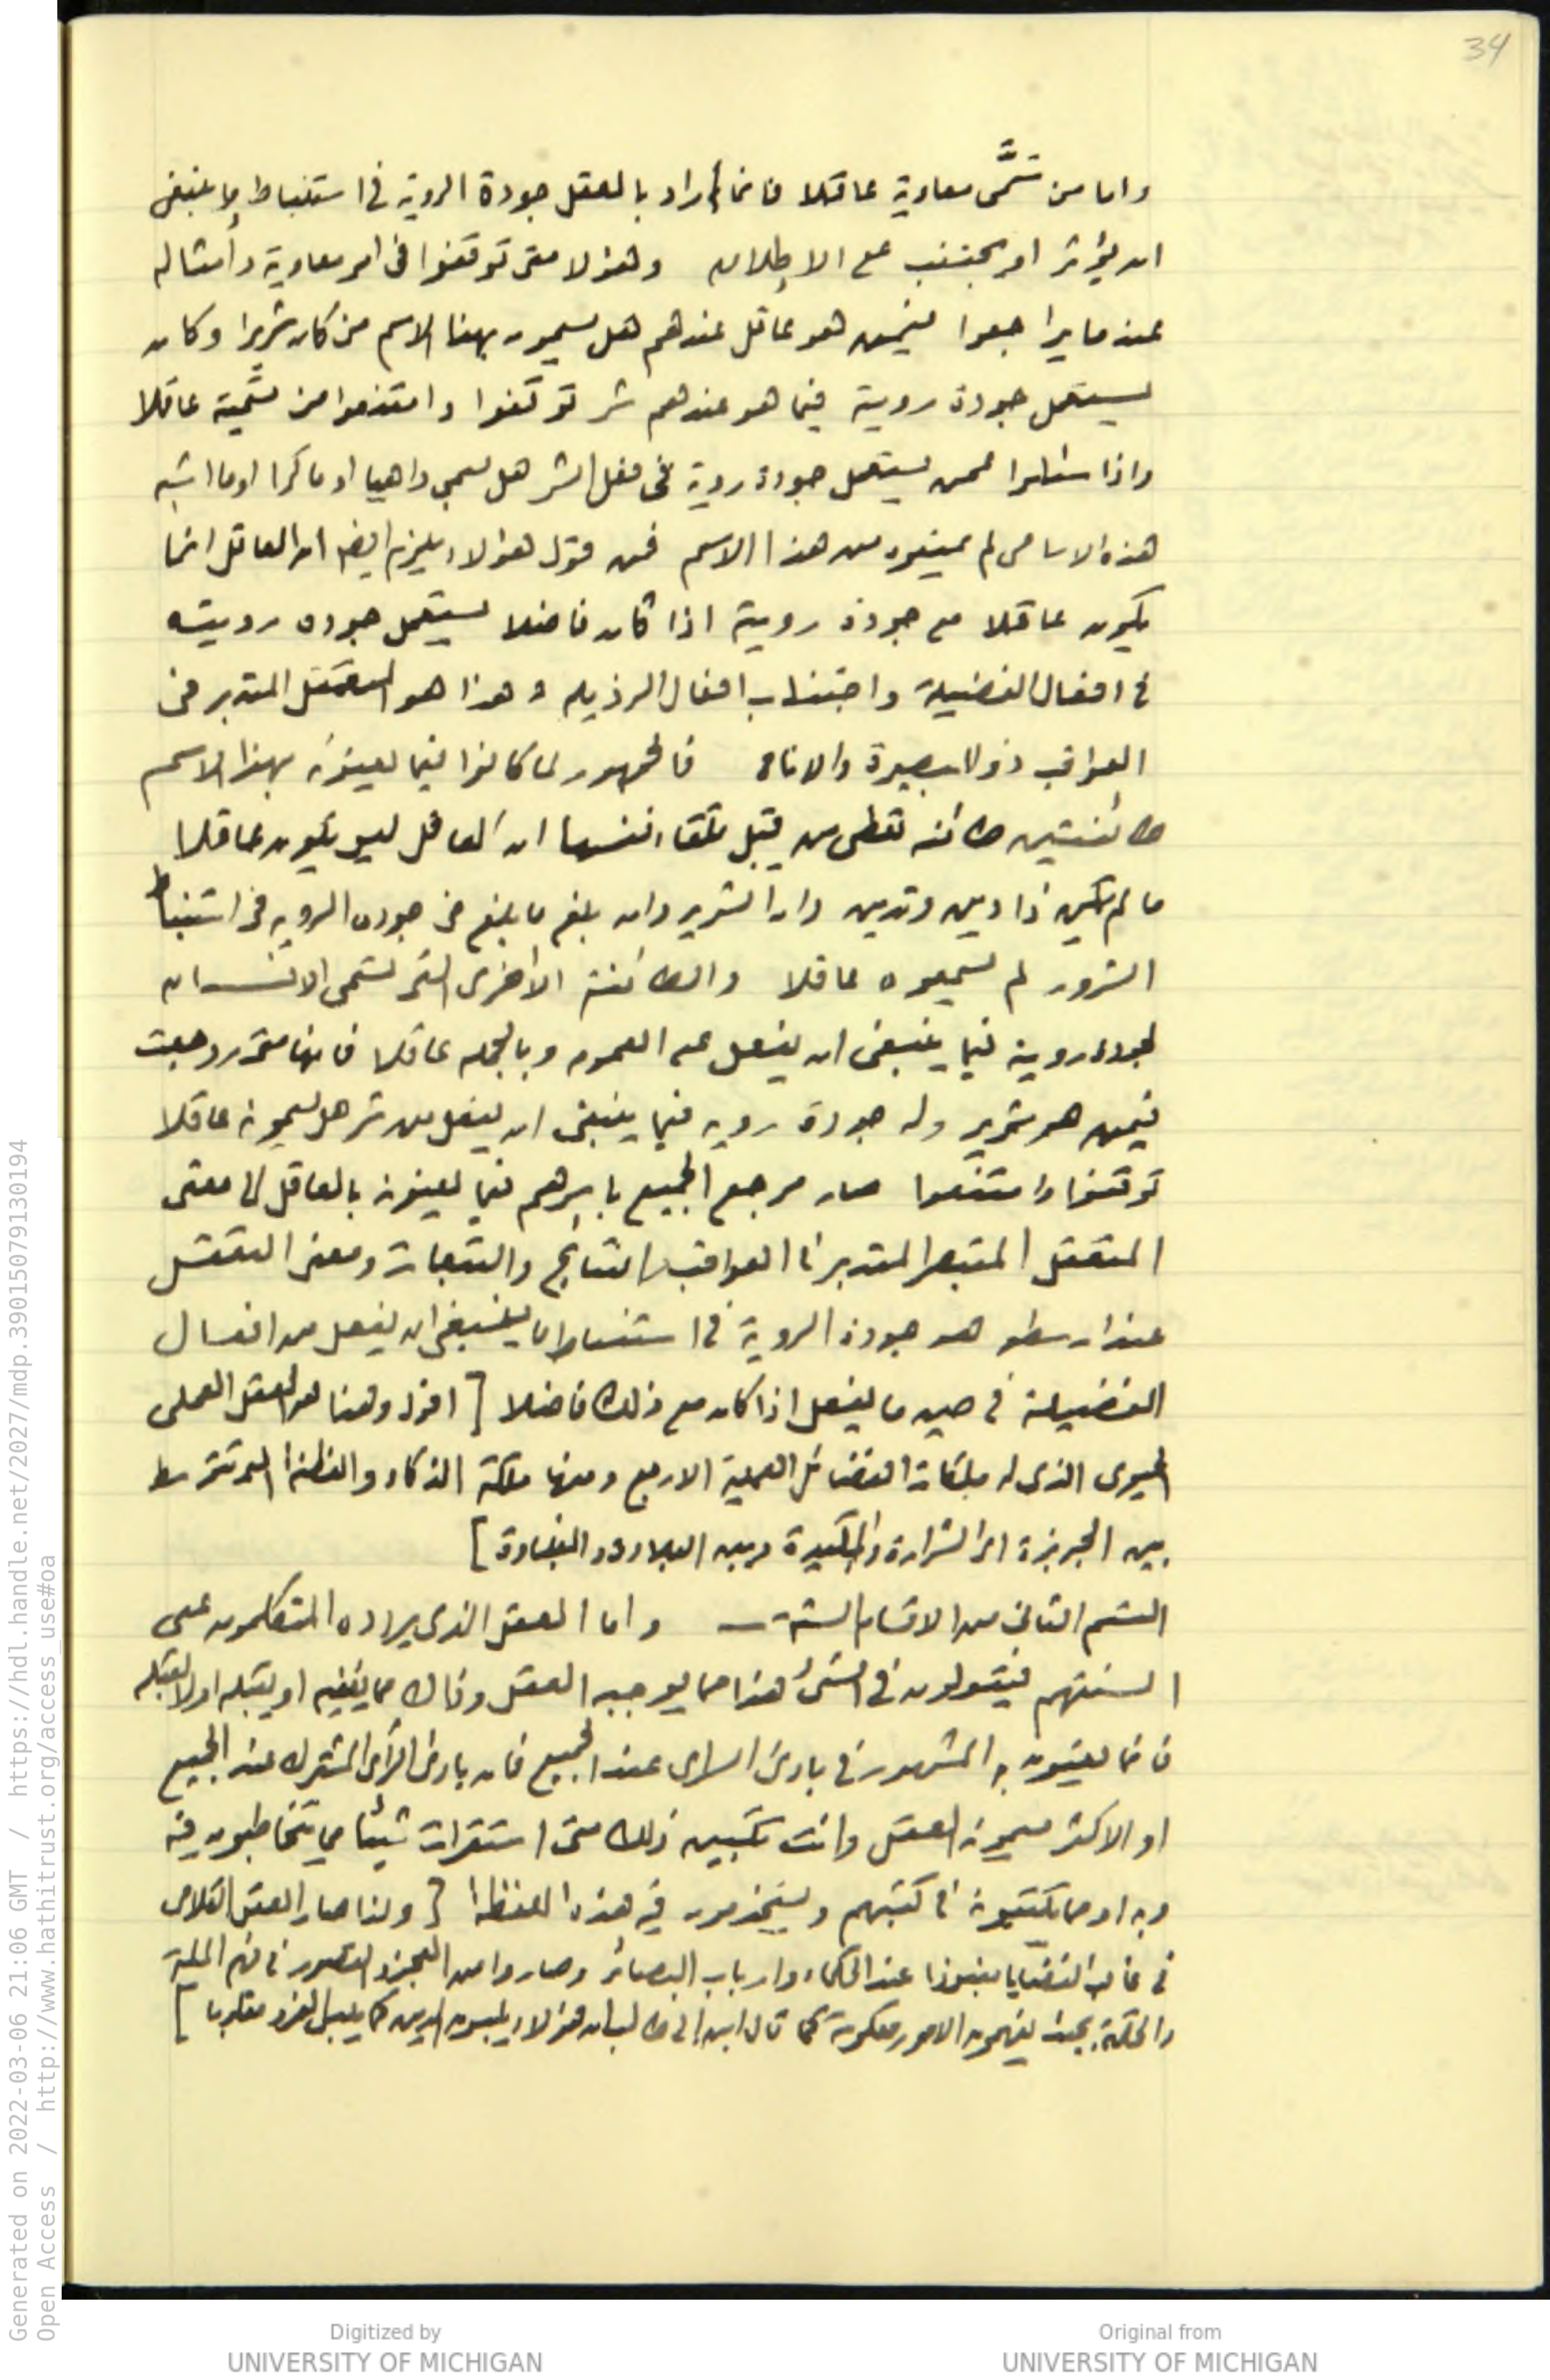 34
واما من سَمَّى معاوية عاقلا فانما اراد بالعقل جودة الروية فى استنباط ما ينبغى
ان يؤثر او يجتنب على الاطلاق وهؤلا متى توقفوا فى امر معاوية وأمثاله
عندما يراجعوا فيمن هو عاقل عندهم هل يسمون بهذا الاسم من كان شريرا وكان
يستعمل جودة روية فيما هو عندهم شر توقفوا وامتنعوا من تسَّمية عاقلا
واذا سئلوا عمن يستعمل جودة روية فى فعل الشر هل يسمى داهيا او ماكرا او ما اشبه
هذه الاسامى لم يمنعوه من هذا الاسم فمن قول هؤلاء يلزم ايضا ان العاقل انما
يكون عاقلا مع جودة روية اذا كان فاضلا يستعمل جوده رويته
فى افعال الفضيلة واجتناب افعال الرذيله وهذا هو المتعقل المتدبر فى
العواقب ذو البصيرة والاناه فالجمهور لما كانوا فيما يعنونه بهذا الاسم
طائفتين طائفه تعطى من قبل تلقاء نفسها ان العاقل ليس يكون عاقلا
ما لم يكن ذا دين وتدين وان الشرير وان بلغ ما بلغ فى جوده الرويه فى استنباط
الشرور لم يسميوه عاقلا والطائفة الأخرى التى تسمى الانسان
لجوده روية فيما ينبغى ان يفعل على العموم وبالجمله عاقلا فانها متى روجعت
فيمن هو شرير وله جودة رويه فيما ينبغى ان يفعل من شر هل يسمونه عاقلا
توقفوا وامتنعوا صار مرجع الجميع باسرهم فيما يعنونه بالعاقل الى معنى
المتعقل المتبصر المتدبر فى العواقب والنتايج والتبعات ومعنى التعقل
عند ارسطو هو جودة الروية فى استنباط ما ينبغى ان يفعل من افعال
الفضيلة فى حين ما يفعل اذا كان مع ذلك فاضلا [ اقول وهذا هو العقل العملى
الذى له ملكات الفضائل العملية الاربع ومنها ملكة الذكاء والفطنة التى تتوسط
بين الجربزة اى الشرارة والمكيدة وبين البلادة والغباوة ]
القسم الثانى من الاقسام الستة — واما العقل الذى يردده المتكلمون على
السنتهم فيقولون فى الشئ هذا مما يوجبه العقل وذاك مما ينفيه او يقبله او لا يقبله
فانما يعنون به المشهور فى بادئ الراى عند الجميع فان بادئ الرأى المشترك عند الجميع
او الاكثر يسمونه العقل وانت تتبين ذلك متى استقرات شيئا مما يتخاطبون فيه
وبه او مما يكتبونه فى كتبهم ويستخدمون فيه هذه اللفظة [ ولذا صار العقل الكلامى
فى غالب القضايا منبوذا عند الحكماء وارباب البصائر وصاروا من العجز والقصور فى فهم الملة
والحكمة بحيث يفهمون الامور معكوسة كما قال ابن ابى طالب ان هؤلاء يلبسون الدين كما يلبس الفرو مقلوبا ]
Generated on 2022-03-06 21:06 GMT / https://hdl.handle.net/2027/mdp.39015079130194
Open Access / http://www.hathitrust.org/access_use#oa
Digitized by
UNIVERSITY OF MICHIGAN
Original from
UNIVERSITY OF MICHIGAN